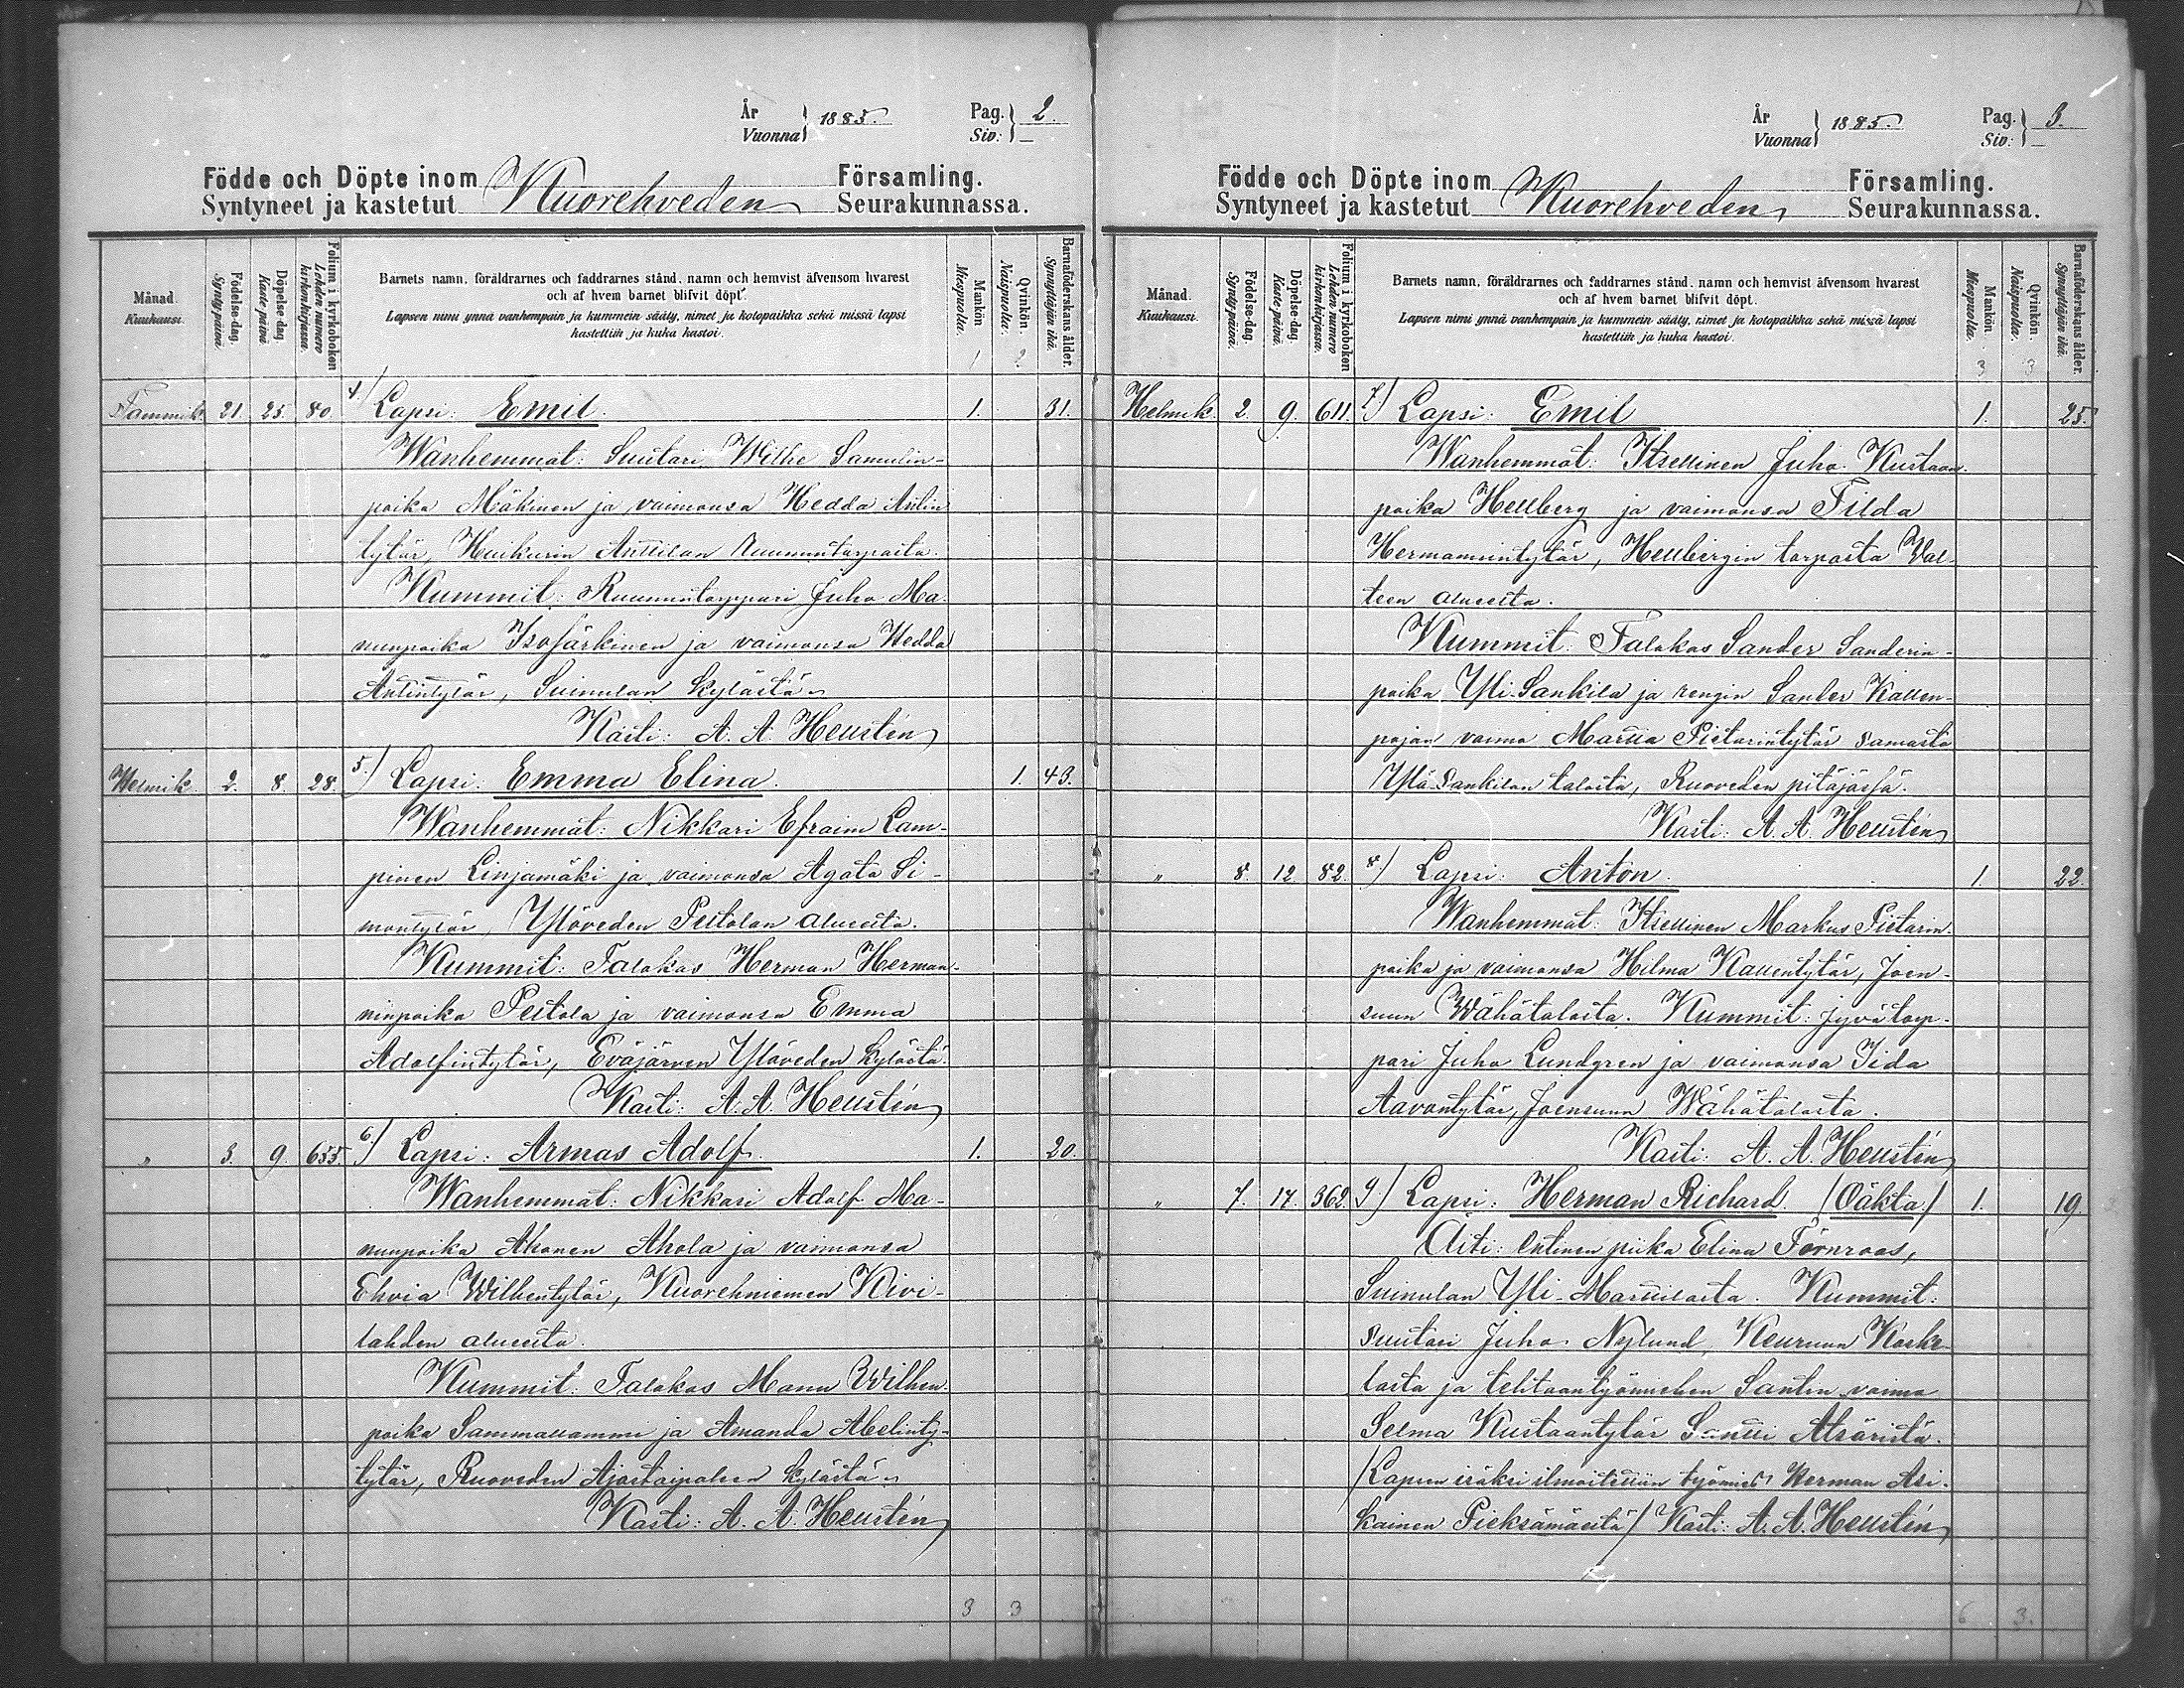 År
Vuonna } 1885.
Pag.
Siv: } 2.
Födde och Döpte inom Kuorehveden Församling.
Syntyneet ja kastetut Seurakunnassa.
Månad. Kuukausi.
Födelse-dag. Syntypäivä.
Döpelse-dag. Kaste päivä
Folium i kyrkoboken Lehden numero kirkonkirjassa.
Barnets namn, föräldrarnes och faddrarnes stånd, namn och hemvist äfvensom hvarest
och af hvem barnet blifvit döpt.
Lapsen nimi ynnä vanhempain ja kummein sääty, nimet ja kotopaikka sekä missä lapsi
kastettiin ja kuka kastoi.
Mankön Miespuolta.
Qvinkön. Naispuolta.
Barnaföderskans ålder. Synnyttäjän ikä.
1 2
Tammik. 21. 25. 80. 4.) Lapsi: Emil. 1. 31.
Wanhemmat: Suutari Wilhe Samulin-
poika Mäkinen ja vaimonsa Hedda Antin
tytär, Huikurin Anttilan Ruununtorpasta.
Kummit: Ruununtorppari Juho Ma
nunpoika Isojärkinen ja vaimonsa Hedda
Antintytär, Suinulan kylästä.
Kasti: A. A. Heustén
Helmik. 2. 8. 28. 5.) Lapsi: Emma Elina. 1. 43.
Wanhemmat: Nikkari Efraim Lam-
pinen Linjamäki ja vaimonsa Agata Si-
montytär, Ylöveden Peltolan alueelta.
Kummit: Talokas Herman Herman-
ninpoika Peltola ja vaimonsa Emma
Adolfintytär, Eväjärven Ylöveden kylästä.
Kasti: A. A. Heustén
" 3. 9. 655. 6.) Lapsi: Armas Adolf. 1. 20.
Wanhemmat: Nikkari Adolf Ma-
nunpoika Ahonen Ahola ja vaimonsa
Ehvia Wilhentytär, Kuorehniemen Kivi-
lahden alueelta.
Kummit: Talokas Manu Wilhen-
poika Sammallammi ja Amanda Abelinty-
tytär, Ruoveden Ajostaipaleen kylästä.
Kasti: A. A. Heustén
3 3
År
Vuonna } 1885.
Pag.
Siv: } 3.
Födde och Döpte inom Kuorehveden Församling.
Syntyneet ja kastetut Seurakunnassa.
Månad. Kuukausi.
Födelse-dag. Syntypäivä.
Döpelse-dag. Kaste päivä.
Folium i kyrkoboken Lehden numero kirkonkirjassa.
Barnets namn, föräldrarnes och faddrarnes stånd, namn och hemvist äfvensom hvarest
och af hvem barnet blifvit döpt.
Lapsen nimi ynnä vanhempain ja kummein sääty, nimet ja kotopaikka sekä missä lapsi
kastettiin ja kuka kastoi.
Mankön Miespuolta.
Qvinkön. Naispuolta.
Barnaföderskans ålder. Synnyttäjän ikä.
3 3
Helmik. 2. 9. 611. 7.) Lapsi: Emil 1. 25.
Wanhemmat: Itsellinen Juho Kustaan-
poika Hellberg ja vaimonsa Tilda
Hermannintytär, Hellbergin torpasta Val-
teen alueelta.
Kummit: Talokas Sander Sanderin-
poika Yli-Sankila ja rengin Sander Kallen-
pojan vaimo Maria Pietarintytär samasta
Ylä-Sankilan talosta, Ruoveden pitäjässä.
Kasti: A. A. Heustén
" 8. 12. 82. 8.) Lapsi: Anton. 1. 22.
Wanhemmat: Itsellinen Markus Pietarin-
poika ja vaimonsa Hilma Kallentytär, Joen-
suun Wähätalosta. Kummit: Jyvätorp-
pari Juho Lundgren ja vaimonsa Iida
Aavontytär, Joensuun Wähätalosta.
Kasti: A. A. Heustén
" 7. 17. 362. 9.) Lapsi: Herman Richard. (Oäkta) 1. 19.
Äiti: entinen piika Elina Törnroos,
Suinulan Yli-Marttilasta. Kummit:
Suutari Juho Nylund, Keuruun Koske-
lasta ja tehtaantyömiehen Santin vaimo
Selma Kustaantytär Santti Atsäristä.
(Lapsen isäksi ilmoitettiin työmies Herman Asi-
kainen Pieksämäeltä) Kasti: A. A. Heustén
6 3.